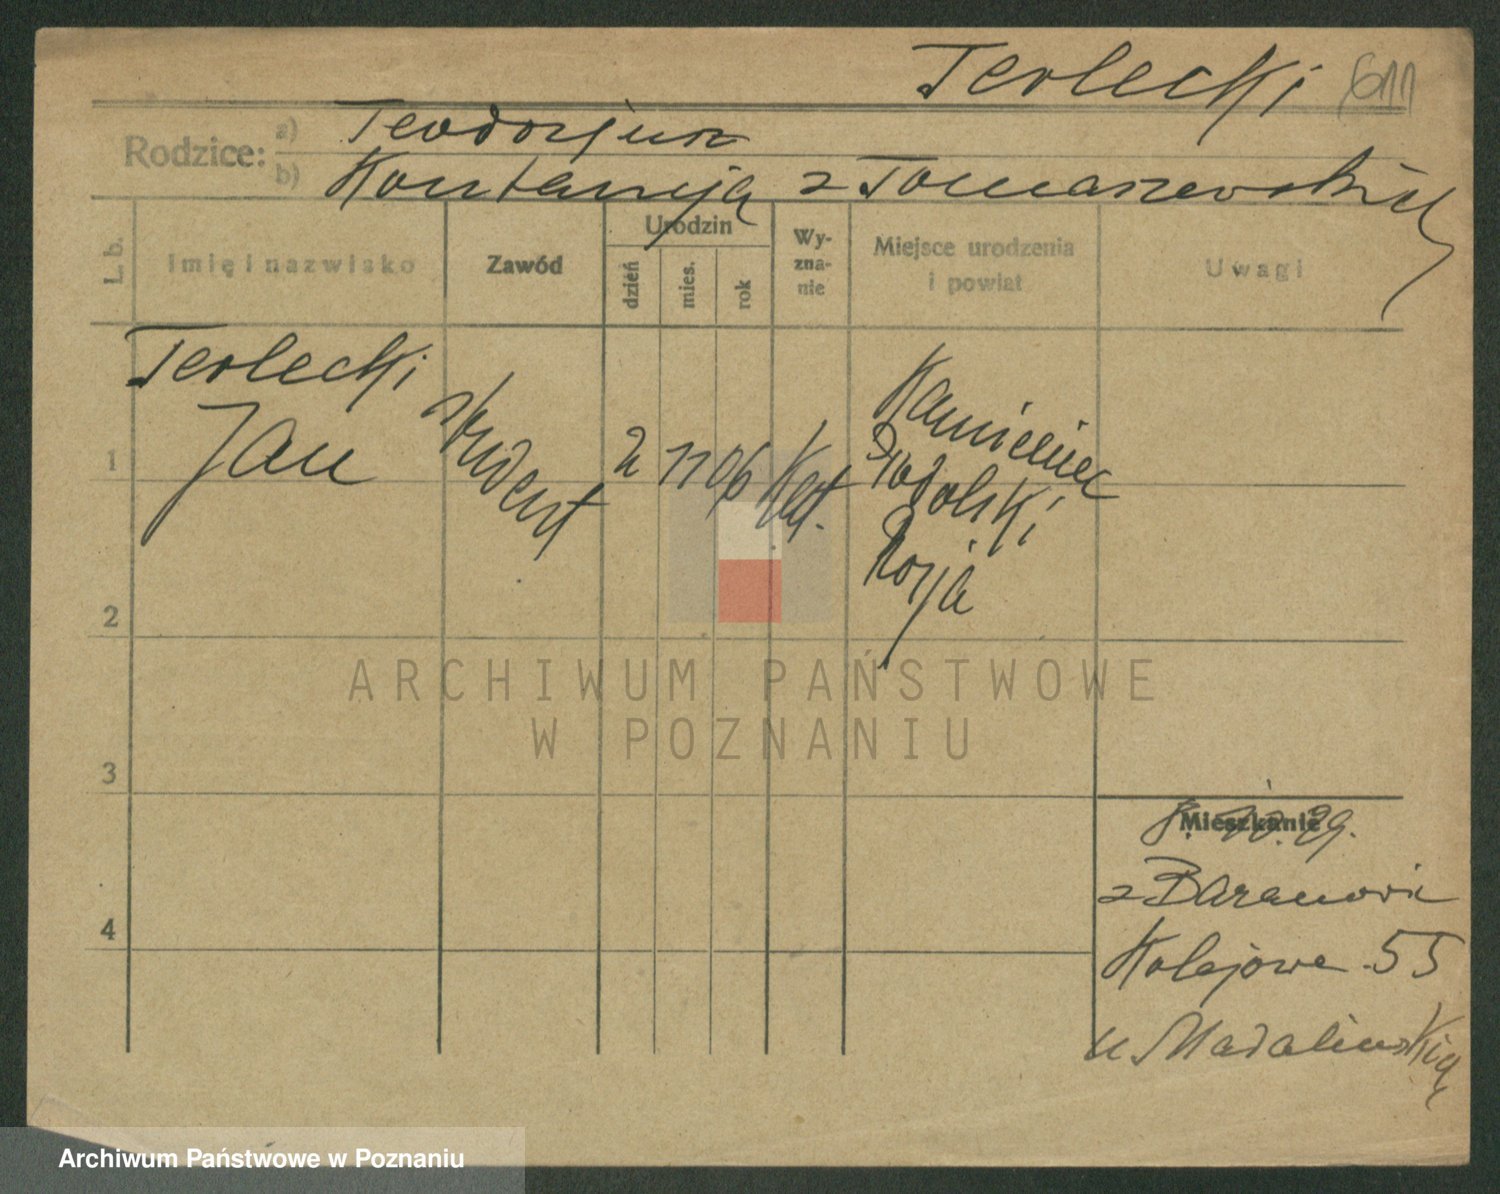 Terlecki 611
Rodzice: a) Teodozjusz
b) Konstancja z Tomaszewskich
L. b.
Imię i nazwisko
Zawód
Urodzin
dzień
mies.
rok
Wy-
zna-
nie
Miejsce urodzenia
i powiat
Uwagi
Terlecki
1 Jan
student
2 11 06
Kat.
Kamieniec
Podolski
Rosja
2
3
4
Mieszkanie
29.
z
Kolejowa 55
u Madalińskich
ARCHIWUM PAŃSTWOWE
W POZNANIU
Archiwum Państwowe w Poznaniu